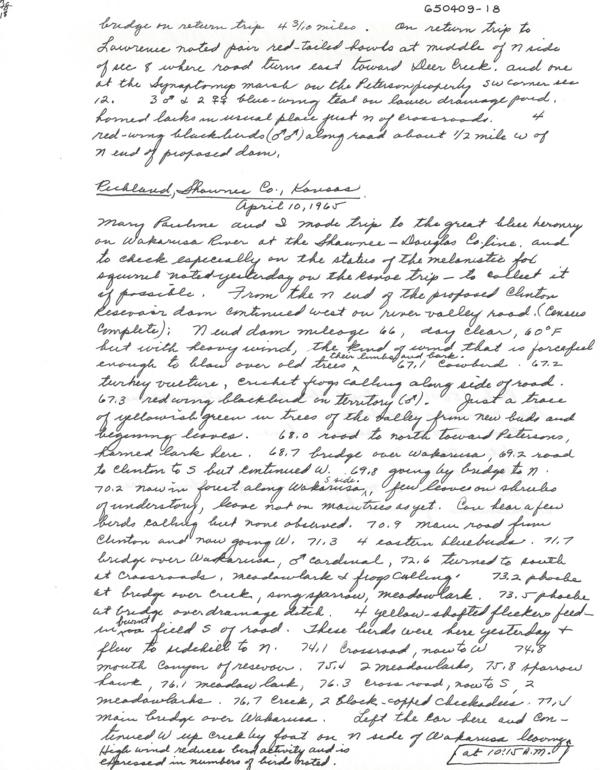 Pg.
18
650409-18
bridge on return trip 4 3/10 miles. On return trip to
Lawrence noted pair red-tailed hawks at middle of N side
of sec 8 where road turns east toward Deer Creek, and one
at the Synaptomys marsh on the Peterson property SW corner sec
12. 3 ♂ & 2 ♀♀ blue-wing teal on lower drainage pond.
horned larks in usual place just N of crossroads. 4
red-wing blackbirds (♂♂) along road about 1/2 mile W of
N end of proposed dam.
Richland, Shawnee Co., Kansas
April 10, 1965
Mary Pauline and I made trip to the great blue heronry
on Wakarusa River at the Shawnee-Douglas Co. line. and
to check especially on the status of the melanistic fox
squirrel noted yesterday on the canoe trip - to collect it
if possible. From the N end of the proposed Clinton
Reservoir dam continued west on river valley road. (Census
Complete): N end dam mileage 66, day clear, 60°F
but with heavy wind, the kind of wind that is forceful
enough to blow over old trees ^ their limbs and bark. 67.1 cowbird. 67.2
turkey vulture, cricket frogs calling along side of road.
67.3 redwing blackbird on territory (♂). Just a trace
of yellowish green in trees of the valley from new buds and
beginning leaves. 68.0 road to north toward Petersons,
horned lark here. 68.7 bridge over Wakarusa, 69.2 road
to Clinton to S but continued W. 69.8 going by bridge to N.
70.2 now in forest along Wakarusa, S side, few leaves on shrubs
of understory, leave not on main trees as yet. Can hear a few
birds calling but none observed. 70.9 main road from
Clinton and now going W. 71.3 4 eastern bluebirds. 71.7
bridge over Wakarusa, ♂ cardinal, 72.6 turned to south
at crossroads, meadowlark & frogs calling. 73.2 phoebe
at bridge over creek, song sparrow, meadowlark. 73.5 phoebe
at bridge over drainage ditch. 4 yellow-shafted flickers feed-
in burnt field S of road. These birds were here yesterday &
flew to sidehill to N. 74.1 Crossroad, now to W 74.8
mouth Canyon of reservoir. 75.4 2 meadowlarks, 75.8 sparrow
hawk, 76.1 meadow lark, 76.3 cross road, now to S, 2
meadowlarks. 76.7 creek, 2 black-capped chickadees. 77.4
main bridge over Wakarusa. Left the car here and con-
tinued W up creek by foot on N side of Wakarusa leaving
High wind reduces bird activity and is at 10:15 A.M.
expressed in numbers of birds noted.